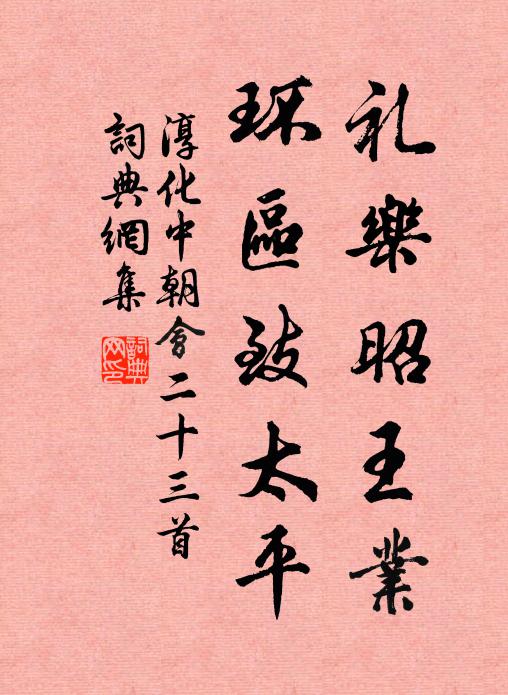 礼樂昭王業
环區致太平
淳化中朝會二十三首
詞典網集
詞典网印